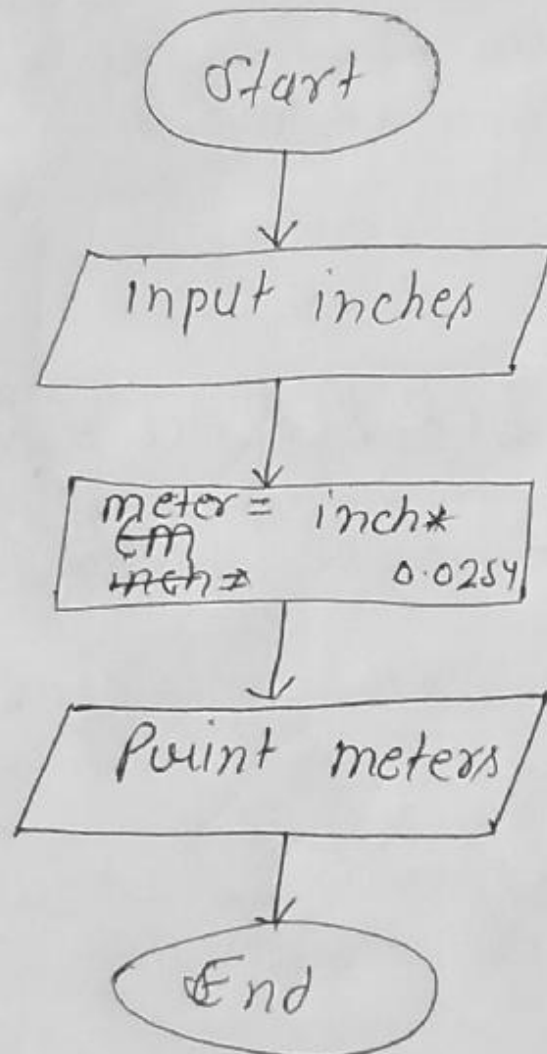 Start
input inches
meter = inch*
cm
inch =
0.0254
Print meters
End